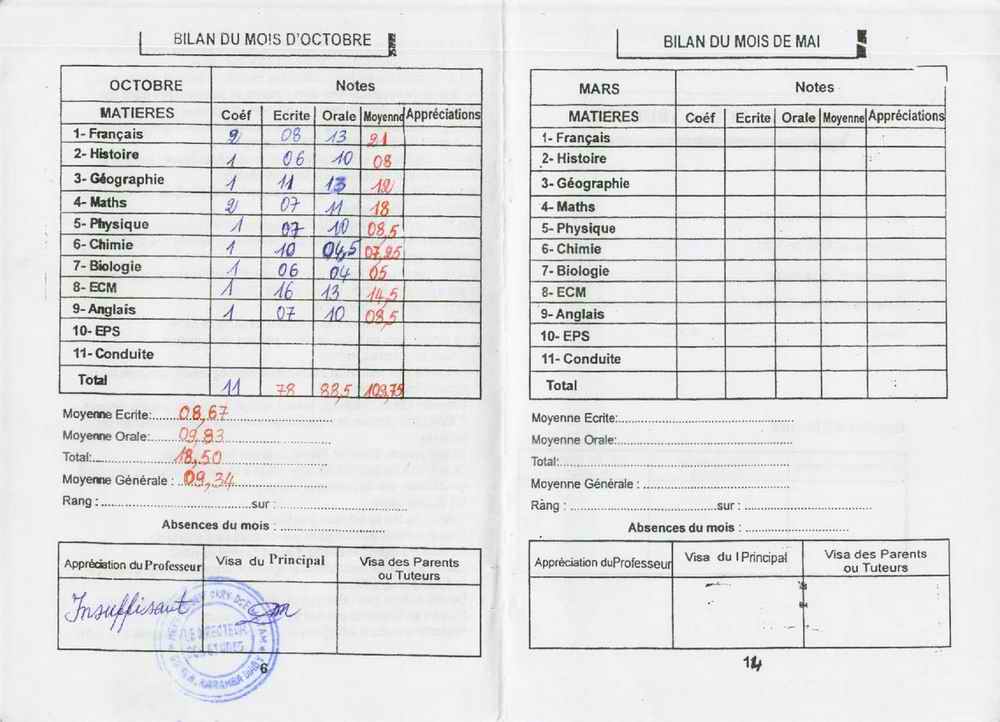 BILAN DU MOIS D'OCTOBRE
OCTOBRE Notes
MATIERES Coéf Ecrite Orale Moyenne Appréciations
1- Français 2 08 13 21
2- Histoire 1 06 10 08
3- Géographie 1 11 13 12
4- Maths 2 07 11 18
5- Physique 1 07 10 08,5
6- Chimie 1 10 04,5 07,25
7- Biologie 1 06 04 05
8- ECM 1 16 13 14,5
9- Anglais 1 07 10 08,5
10- EPS
11- Conduite
Total 11 78 88,5 109,75
Moyenne Ecrite: 08,67
Moyenne Orale: 09,83
Total: 18,50
Moyenne Générale : 09,34
Rang : sur :
Absences du mois :
Appréciation du Professeur Visa du Principal Visa des Parents ou Tuteurs
Insuffisant
LE DIRECTEUR
6
BILAN DU MOIS DE MAI
MARS Notes
MATIERES Coéf Ecrite Orale Moyenne Appréciations
1- Français
2- Histoire
3- Géographie
4- Maths
5- Physique
6- Chimie
7- Biologie
8- ECM
9- Anglais
10- EPS
11- Conduite
Total
Moyenne Ecrite:
Moyenne Orale:
Total:
Moyenne Générale :
Rang : sur :
Absences du mois :
Appréciation du Professeur Visa du Principal Visa des Parents ou Tuteurs
14